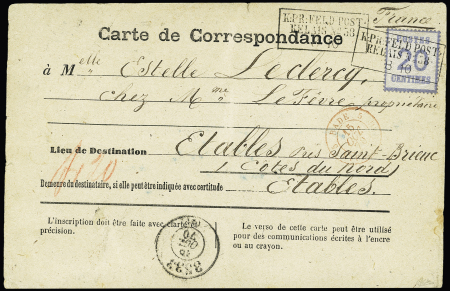 K.PR.FELD POST-
RELAIS № 38
France
Carte de Correspondance
K.PR.FELD POST-
RELAIS № 38
8 10
POSTES
20
CENTIMES
à Melle Estelle Leclercq,
chez Mme Le Fèvre, propriétaire
Lieu de Destination
Etables près Saint-Brieuc
(Côtes du Nord)
Demeure du destinataire, si elle peut être indiquée avec certitude
Etables.
L'inscription doit être faite avec clarté et
précision.
Le verso de cette carte peut être utilisé
pour des communications écrites à l'encre
ou au crayon.
3532
70